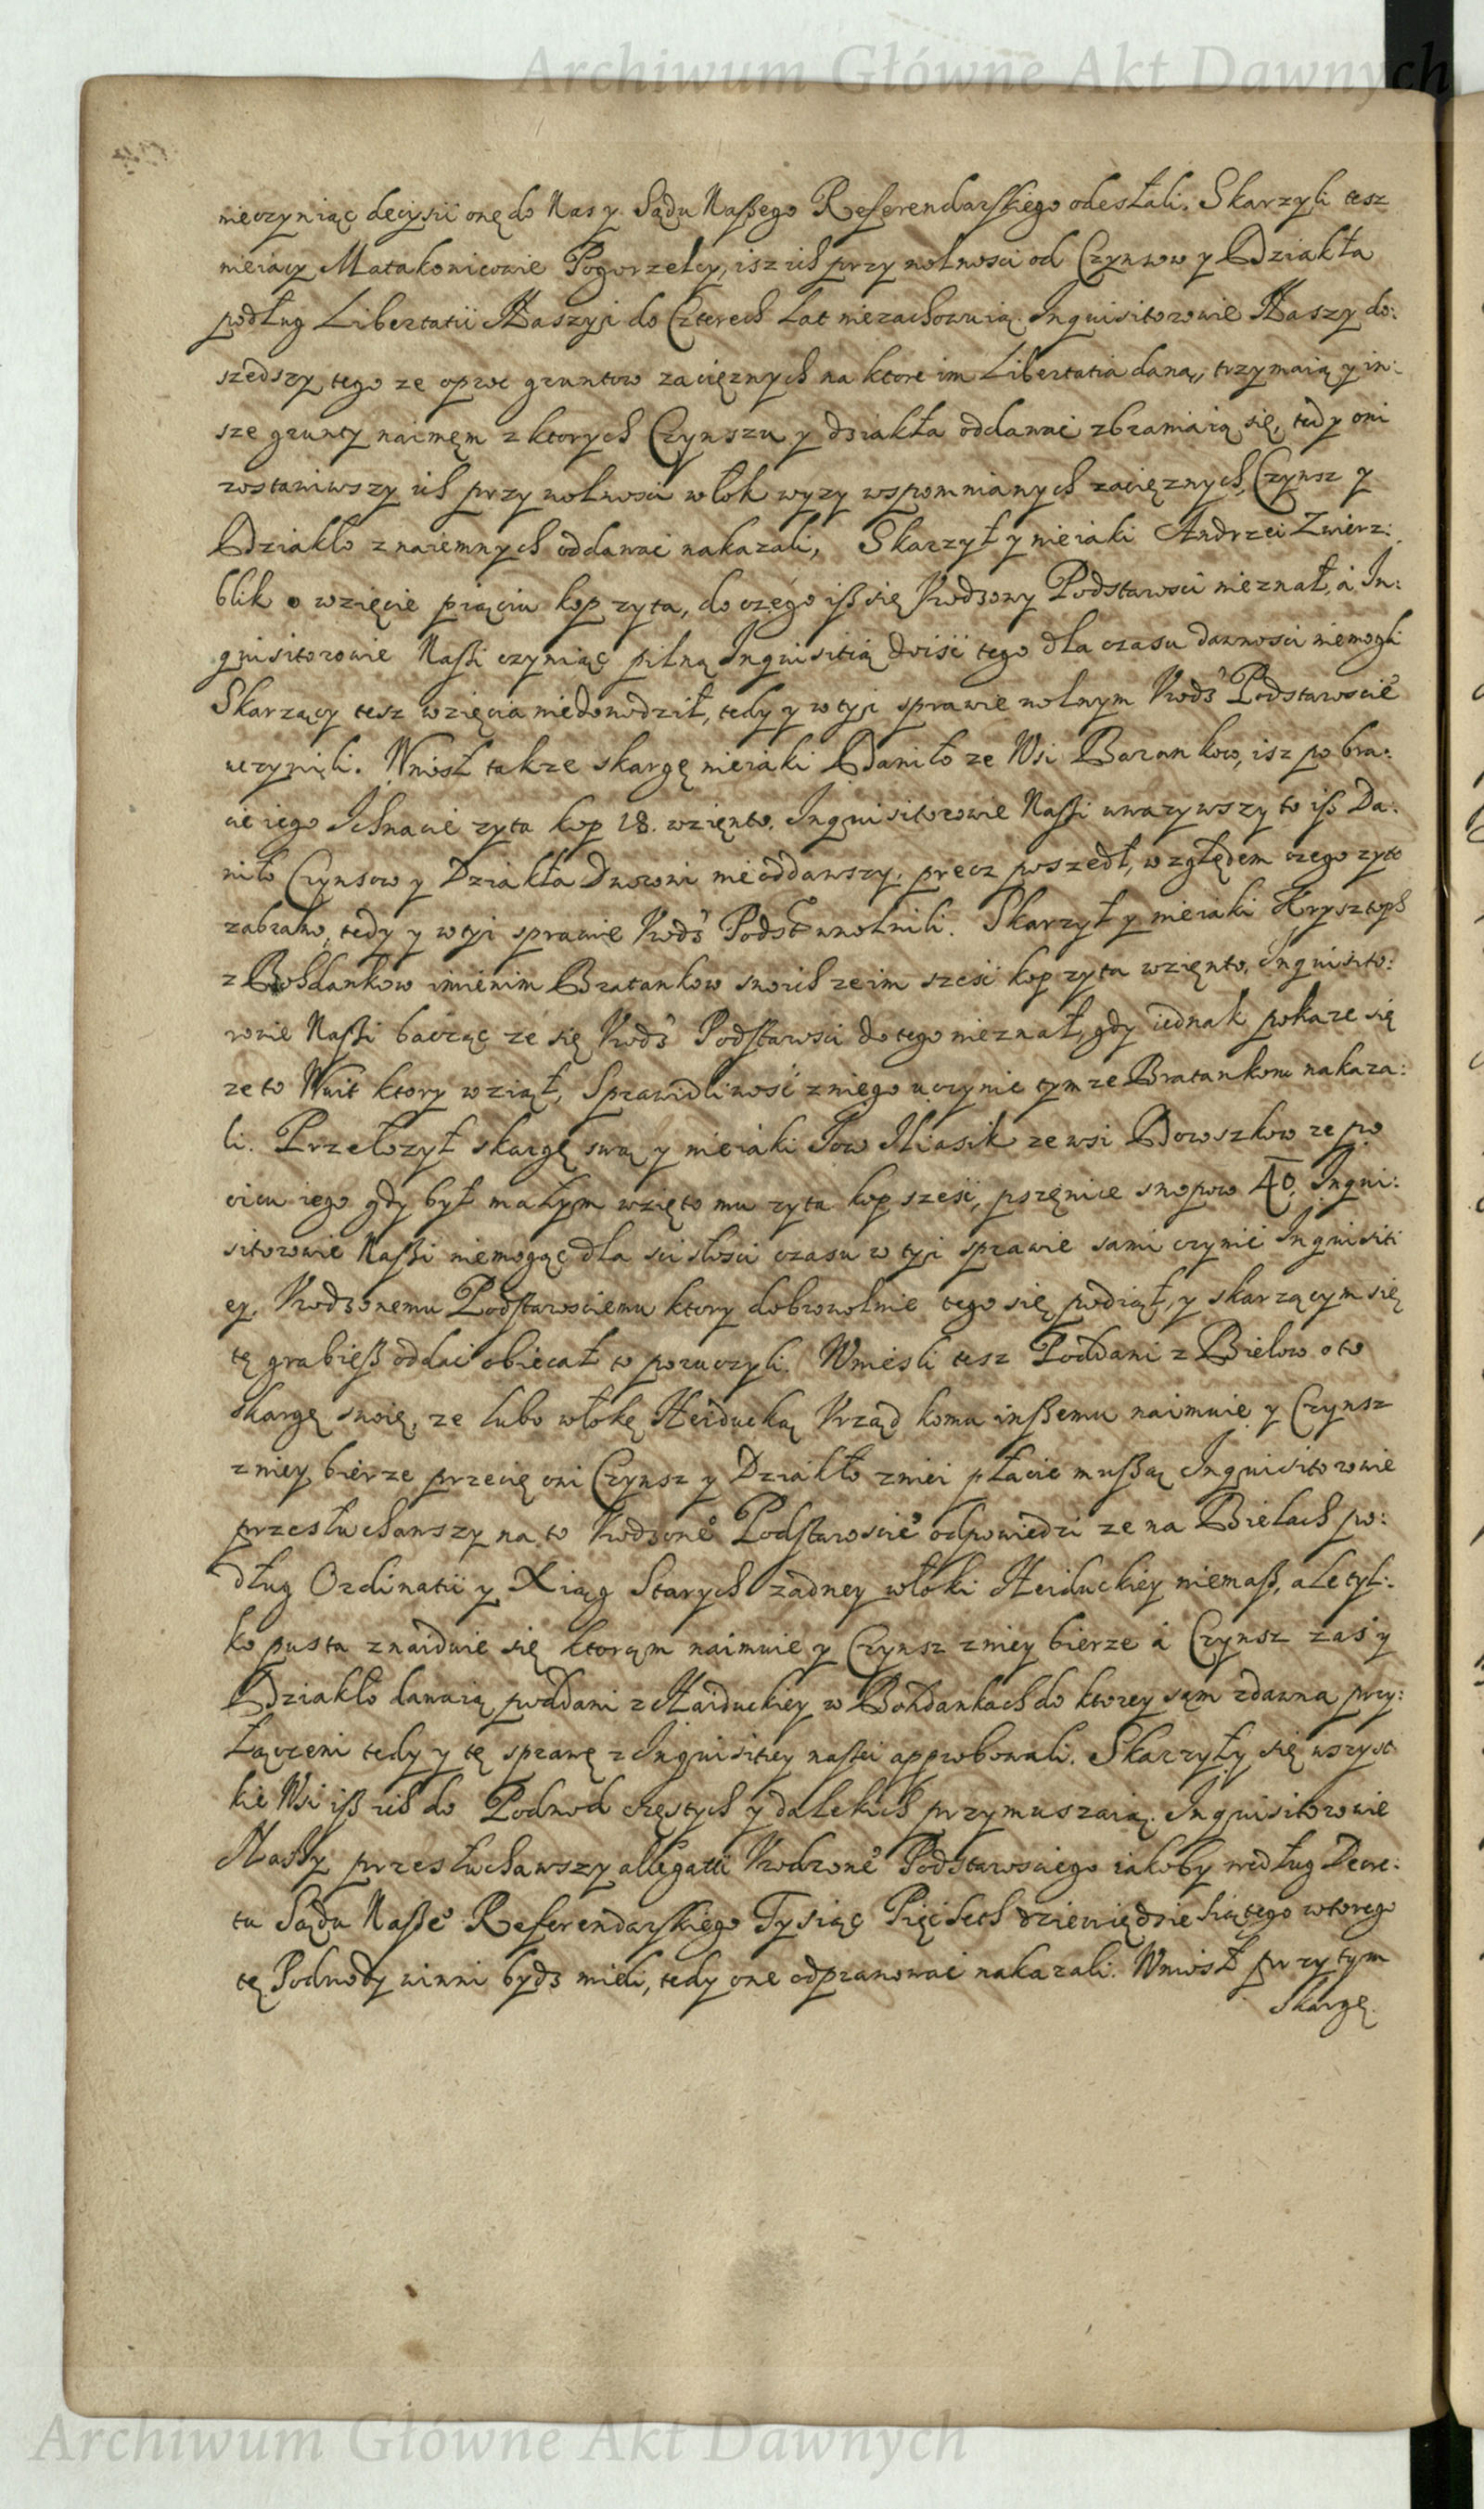 Archiwum Główne Akt Dawnych
nieczyniąc decysii onę do Nas y Sądu Naszego Referendarskiego odesłali. Skarzyli tesz
nieiacy Matakonicowie Pogorzelcy, isz ich przy wolnosci od Czynszow y Dziakła
podług Libertatii Naszyi do Czterech Lat niezachowuią. Inquisitorowie Naszy do:
szedszy tego ze oprocz gruntow zaciężnych na ktore im Libertatia daną, trzymaią y in:
sze grunty naimęm z ktorych Czynszu y dziakła oddawać zbraniaią się, tedy oni
zostawiwszy ich przy wolnosci włok wyzy wspomnianych zaciężnych, Czynsz y
Dziakło z naiemnych oddawać nakazali, Skarzył y nieiaki Andrzei Zwierz:
blik o wzięcie piąciu kop zyta, do czego isz się Urodzony Podstarosci nieznał, á In:
quisitorowie Naszi czyniąc pilną Inquisitią doiść tego dla czasu dawnosci niemogli
Skarzący tesz wzięcia niedowodził, tedy y w tyi sprawie wolnym Urodz° Podstaroscie°
uczynili. Wniosł takze skargę nieiaki Daniło ze Wsi Barankow, isz po bra:
cie iego Ichnacie zyta kop 18. wzięnto. Inquisitorowie Naszi uwazywszy to isz Da:
niło Czynszow y Dziakła Dworowi nieoddawszy, precz poszedł, względem czego zyto
zabrano, tedy y w tyi sprawie Urodz° Podst° uwolnili. Skarzył y nieiaki Krysztoph
z Bohdankow imienim Bratankow swoich ze im sześć kop zyta wzięnto, Inquisito:
rowie Naszi bacząc ze się Urodz° Podstarosci do tego nieznał, gdy iednak pokaze się
ze to Woit ktory wziął, Sprawidliwość z niego uczynić tymze Bratankom nakaza:
li. Przełozył skargę swą y nieiaki Jow Iliasik ze wsi Dowszkow ze po
oicu iego gdy był małym wzięto mu zyta kop sześć, pszęnice snopow 40, Inqui:
sitorowie Naszi niemogąc dla scisłosci czasu w tyi sprawie sami czynić Inquisiti
ey, Urodzonemu Podstarosciemu ktory dobrowolnie tego się podiął, y skarzącym się
tę grabiesz oddać obiecał to poruczyli. Wniesli tesz Poddani z Bielow o to
skargę swoię, ze lubo włokę Heiducką Urząd komu inszemu naimuie y Czynsz
z niey bierze przecię oni Czynsz y Dziakło z niei płacić muszą Inquisitorowie
przesłuchawszy na to Urodzone° Podstaroscie° odpowiedzi ze na Bielach po:
dług Ordinatii y Xiąg Starych zadney włoki Heiduckiey niemasz, ale tyl:
ko pusta znaiduie się ktorąm naimuie y Czynsz z niey bierze á Czynsz zaś y
Dziakło dawaią poddani z Haiduckiey w Bohdankach do ktorey sąm zdawna przy:
łączeni tedy y tę sprawę z Inquisitiey naszei approbowali. Skarzyły się wszyst
kie Wsi isz ich do Podwod częstych y dalekich przymuszaią. Inquisitorowie
Naszy przesłuchawszy allegatii Urodzone° Podstarosciego iakoby według Decre:
tu Sądu Nasze° Referendarskiego Tysiąc Pięćseth dziewiędziesiątego wtorego
tę Podwody winni bydz mieli, tedy one odprawować nakazali. Wniosł przytym
skargę
Archiwum Główne Akt Dawnych